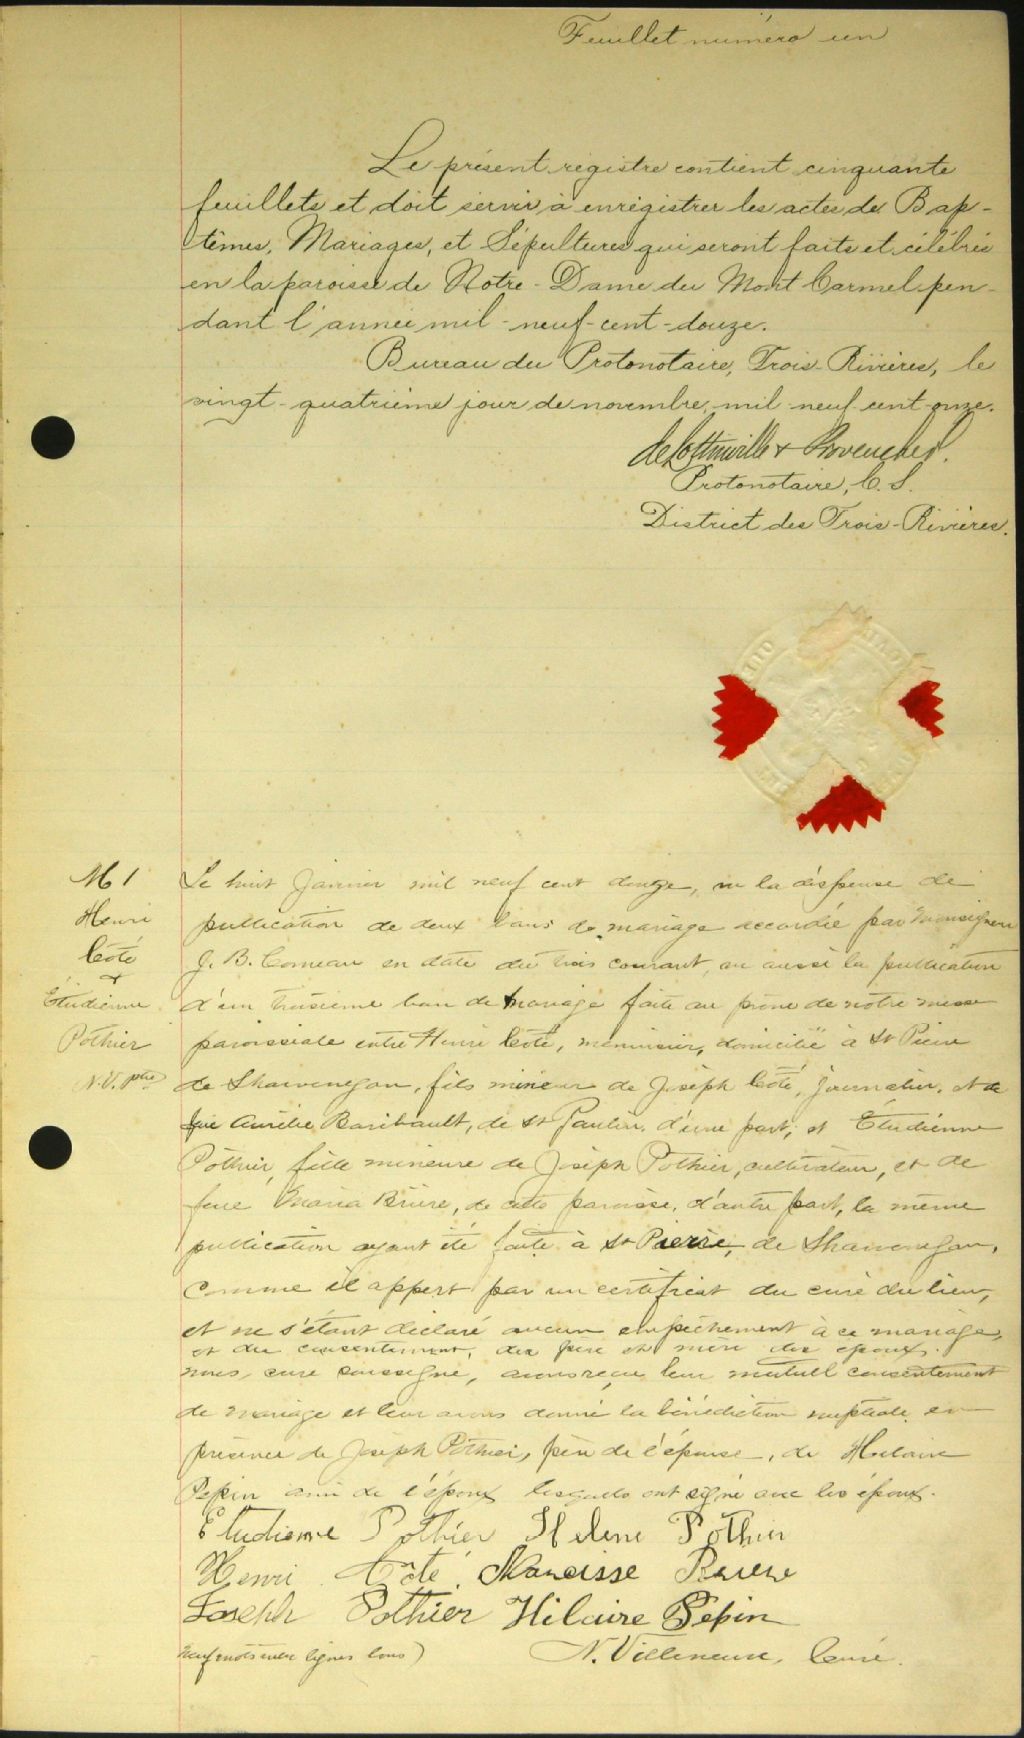 Feuillet numéro un
Le présent régistre contient cinquante
feuillets et doit servir à enrégistrer les actes de Bap-
têmes, Mariages, et Sépultures qui seront faits et célébrés
en la paroisse de Notre-Dame du Mont Carmel pen-
dant l'année mil-neuf-cent-douze.
Bureau du Protonotaire, Trois-Rivières, le
vingt-quatrième jour de novembre, mil neuf cent onze.
deLottinville & Provencher.
Protonotaire, C. S.
District des Trois-Rivières.
M 1
Henri
Côté
&
Étudienne
Pothier
N.V. ptre
Le huit Janvier mil neuf cent douze, vu la dispense de
publication de deux bans de mariage accordée par Monseigneur
J. B. Comeau en date du trois courant, vu aussi la publication
d'un troisième ban de mariage faite au prône de notre messe
paroissiale entre Henri Côté, menuisier, domicilié à St Pierre
de Shawenegan, fils mineur de Joseph Côté, journalier, et de
Aurélie Baribault, de St Paulin, d'une part, et Étudienne
Pothier, fille mineure de Joseph Pothier, cultivateur, et de
feue Maria Brière, de cette paroisse, d'autre part, la même
publication ayant été faite à St Pierre, de Shawenegan,
comme il appert par un certificat du curé du lieu,
et ne s'étant déclaré aucun empêchement à ce mariage,
et du consentement, des père et mère des époux.
nous, curé soussigné, avons reçu leur mutuel consentement
de mariage et leur avons donné la bénédiction nuptiale en
présence de Joseph Pothier, père de l'épouse, de Hilaire
Pepin ami de l'époux lesquels ont signé avec les époux.
Etudienne Pothier Helene Pothier
Henri Côté Narcisse
Joseph Pothier Hilaire Pepin
neuf mots entre lignes bons)
N. Villeneuve, Curé.